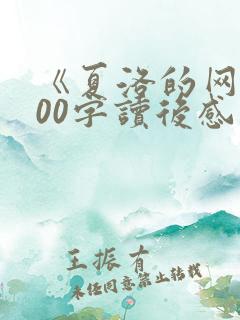 《夏洛的网
00字讀後感
王振有
未任同意禁止转载